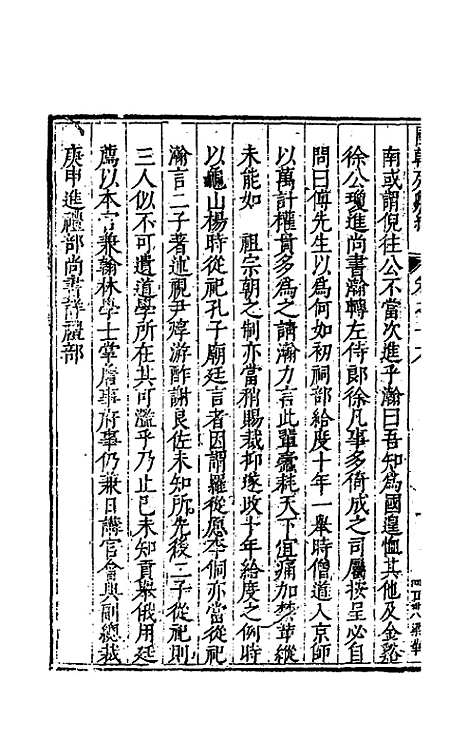 南或謂倪往公不當次進乎瀚曰吾知為國遑恤其他及金谿
徐公瓊進尚書瀚轉左侍郎徐凡事多倚成之司屬按呈必自
問曰傅先生以為何如初祠部給度十年一舉時僧道入京師
以萬計權貴多為之請瀚力言此輩蠹耗天下宜痛加禁革縱
未能如 祖宗朝之制亦當稍賜裁抑遂改十年給度之例時
以龜山楊時從祀孔子廟廷言者因謂羅從彥李侗亦當從祀
瀚言二子著述視尹焞游酢謝良佐未知所先後二子從祀則
三人似不可遺道學所在其可濫乎乃止己未知貢舉俄用廷
薦以本官兼翰林學士掌詹事府事仍兼日講官會典副總裁
庚申進禮部尚書禮部